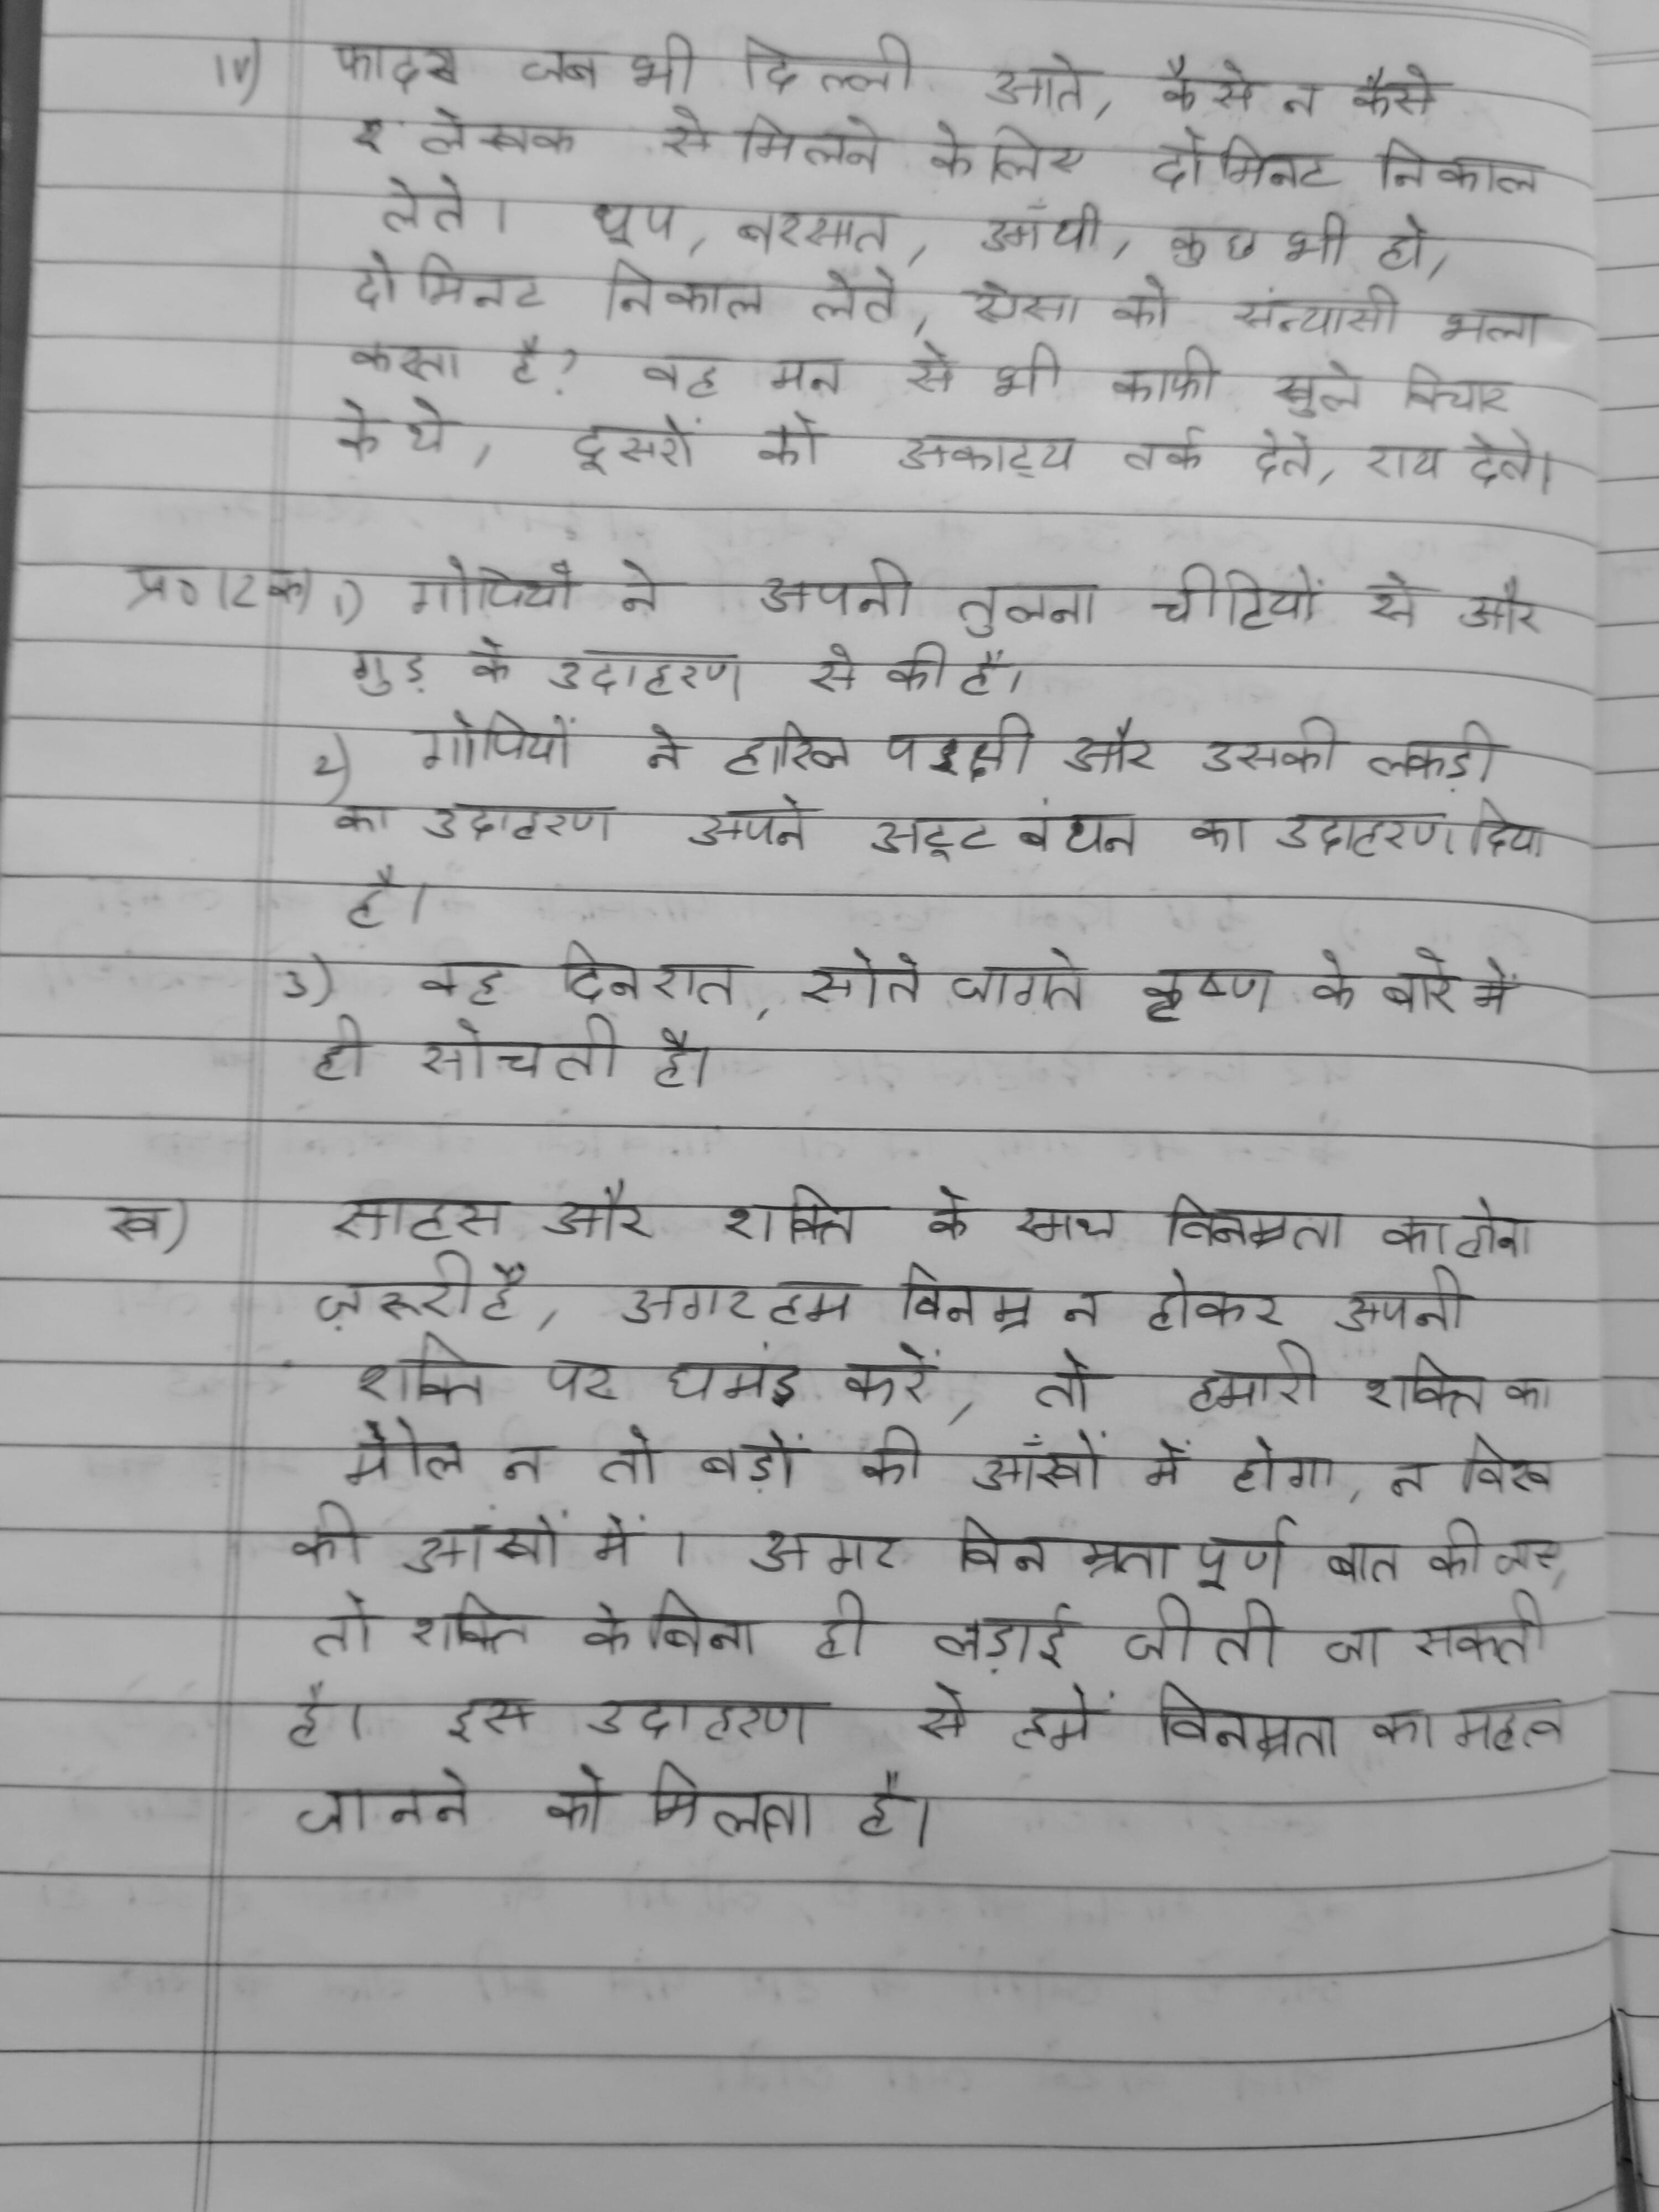 iv) फादर जब भी दिल्ली आते, कैसे न कैसे
लेखक से मिलने के लिए दो मिनट निकाल
लेते। धूप, बरसात, आँधी, कुछ भी हो,
दो मिनट निकाल लेते, ऐसा को संन्यासी भला
करता है? वह मन से भी काफी खुले विचार
के थे, दूसरों को अकाट्य तर्क देते, राय देते।
प्र० 12 क) 1) गोपियों ने अपनी तुलना चीटियों से और
गुड़ के उदाहरण से की है।
2) गोपियों ने हारिल पक्षी और उसकी लकड़ी
का उदाहरण अपने अटूट बंधन का उदाहरण दिया
है।
3) वह दिन रात, सोते जागते कृष्ण के बारे में
ही सोचती है।
ख) साहस और शक्ति के साथ विनम्रता का होना
ज़रूरी है, अगर हम विनम्र न होकर अपनी
शक्ति पर घमंड करें, तो हमारी शक्ति का
मोल न तो बड़ों की आँखों में होगा, न विश्व
की आंखों में। अगर विनम्रता पूर्ण बात की जाए,
तो शक्ति के बिना ही लड़ाई जीती जा सकती
है। इस उदाहरण से हमें विनम्रता का महत्व
जानने को मिलता है।